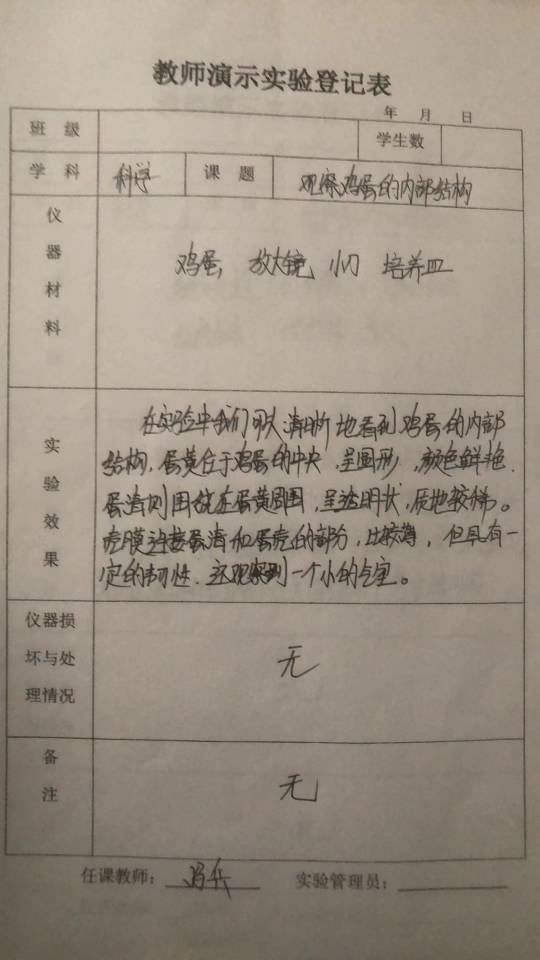 教师演示实验登记表
年 月 日
班 级 学生数
学 科 科学 课 题 观察鸡蛋的内部结构
仪器材料 鸡蛋, 放大镜 小刀 培养皿
实验效果
在实验中我们可以清晰地看到鸡蛋的内部
结构, 蛋黄位于鸡蛋的中央, 呈圆形, 颜色鲜艳.
蛋清则围绕在蛋黄周围, 呈透明状, 质地较稀。
壳膜连接蛋清和蛋壳的部分, 比较薄, 但具有一
定的韧性. 还观察到一个小的气室。
仪器损
坏与处 无
理情况
备注 无
任课教师: 实验管理员: